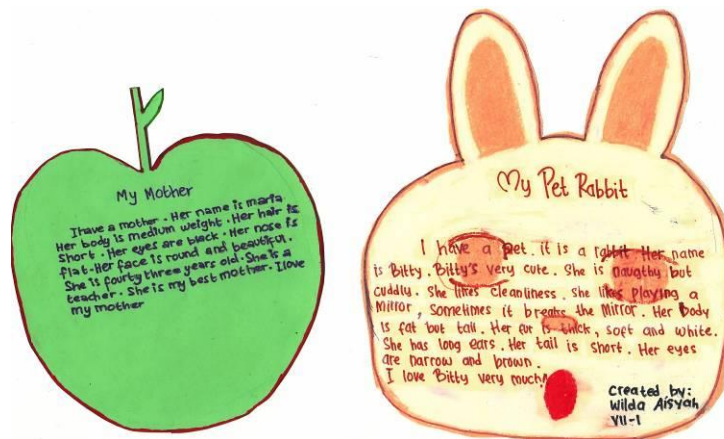 My Mother
I have a mother. Her name is maria
Her body is medium weight. Her hair is
short. Her eyes are black. Her nose is
flat. Her face is round and beautiful.
She is fourty three years old. She is a
teacher. She is my best mother. I love
my mother
My Pet Rabbit
I have a pet. it is a rabbit Her name
is Bitty. Bitty's very cute. She is naugthy but
cuddly. She likes cleanliness. She likes playing a
Mirror, Sometimes it breaks the Mirror. Her Body
is fat but tall. Her fur is thick, soft and white.
She has long ears. Her tail is short. Her eyes
are narrow and brown.
I love Bitty very much!
created by:
Wilda Aisyah
VII-1